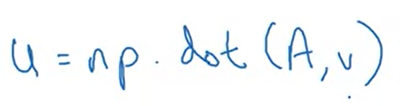 u = np.dot(A,v)